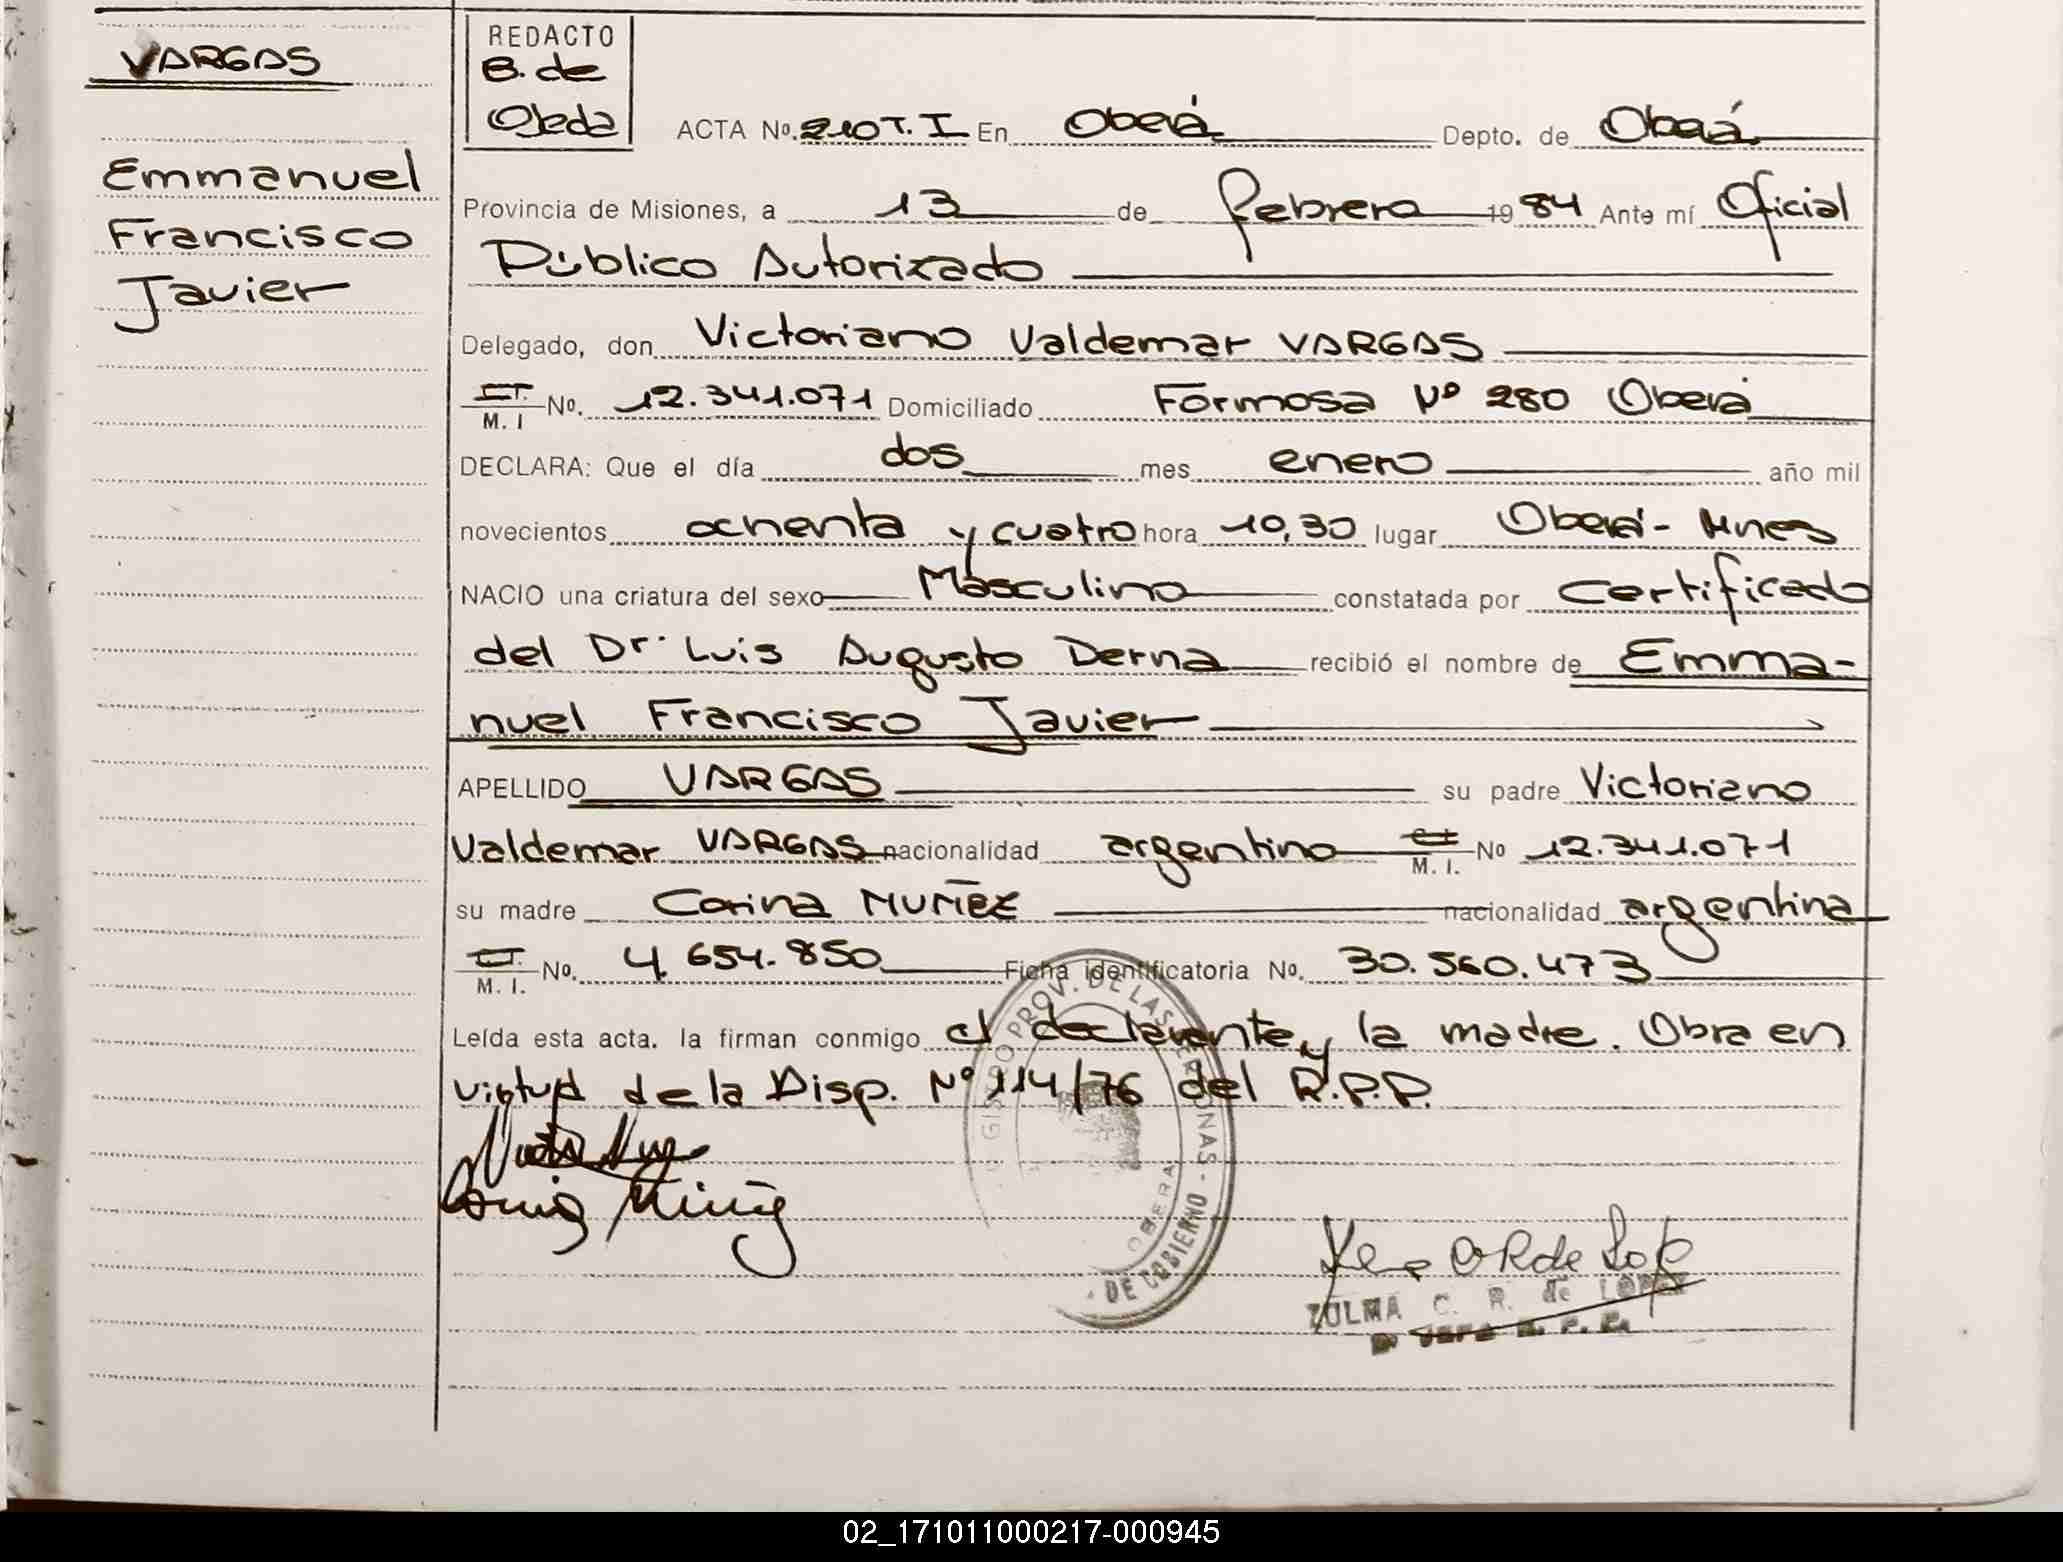 VARGAS
Emmanuel
Francisco
Javier
REDACTO
B. de
Ojeda
ACTA No. 210 T. I En Oberá Depto. de Oberá
Provincia de Misiones, a 13 de febrero 19 84 Ante mí Oficial
Público Autorizado
Delegado, don Victoriano Valdemar VARGAS
C.I. M. I No. 12.341.071 Domiciliado Formosa Nº 280 Oberá
DECLARA: Que el día dos mes enero año mil
novecientos ochenta y cuatro hora 10,30 lugar Oberá - Mnes
NACIO una criatura del sexo Masculino constatada por Certificado
del Dr. Luis Augusto Derna recibió el nombre de Emma-
nuel Francisco Javier
APELLIDO VARGAS su padre Victoriano
Valdemar VARGAS nacionalidad argentino C.I. M. I. No 12.341.071
su madre Corina MUÑEZ nacionalidad argentina
C.I. M. I. No. 4.654.850 Ficha identificatoria No. 30.560.473
Leída esta acta. la firman conmigo el declarante y la madre. Obra en
virtud de la Disp. Nº 114/76 del R.P.P.
GISTRO PROV. DE LAS PERSONAS - DE GOBIERNO
OBERA
ZULMA C. R. de LOPEZ
02_171011000217-000945